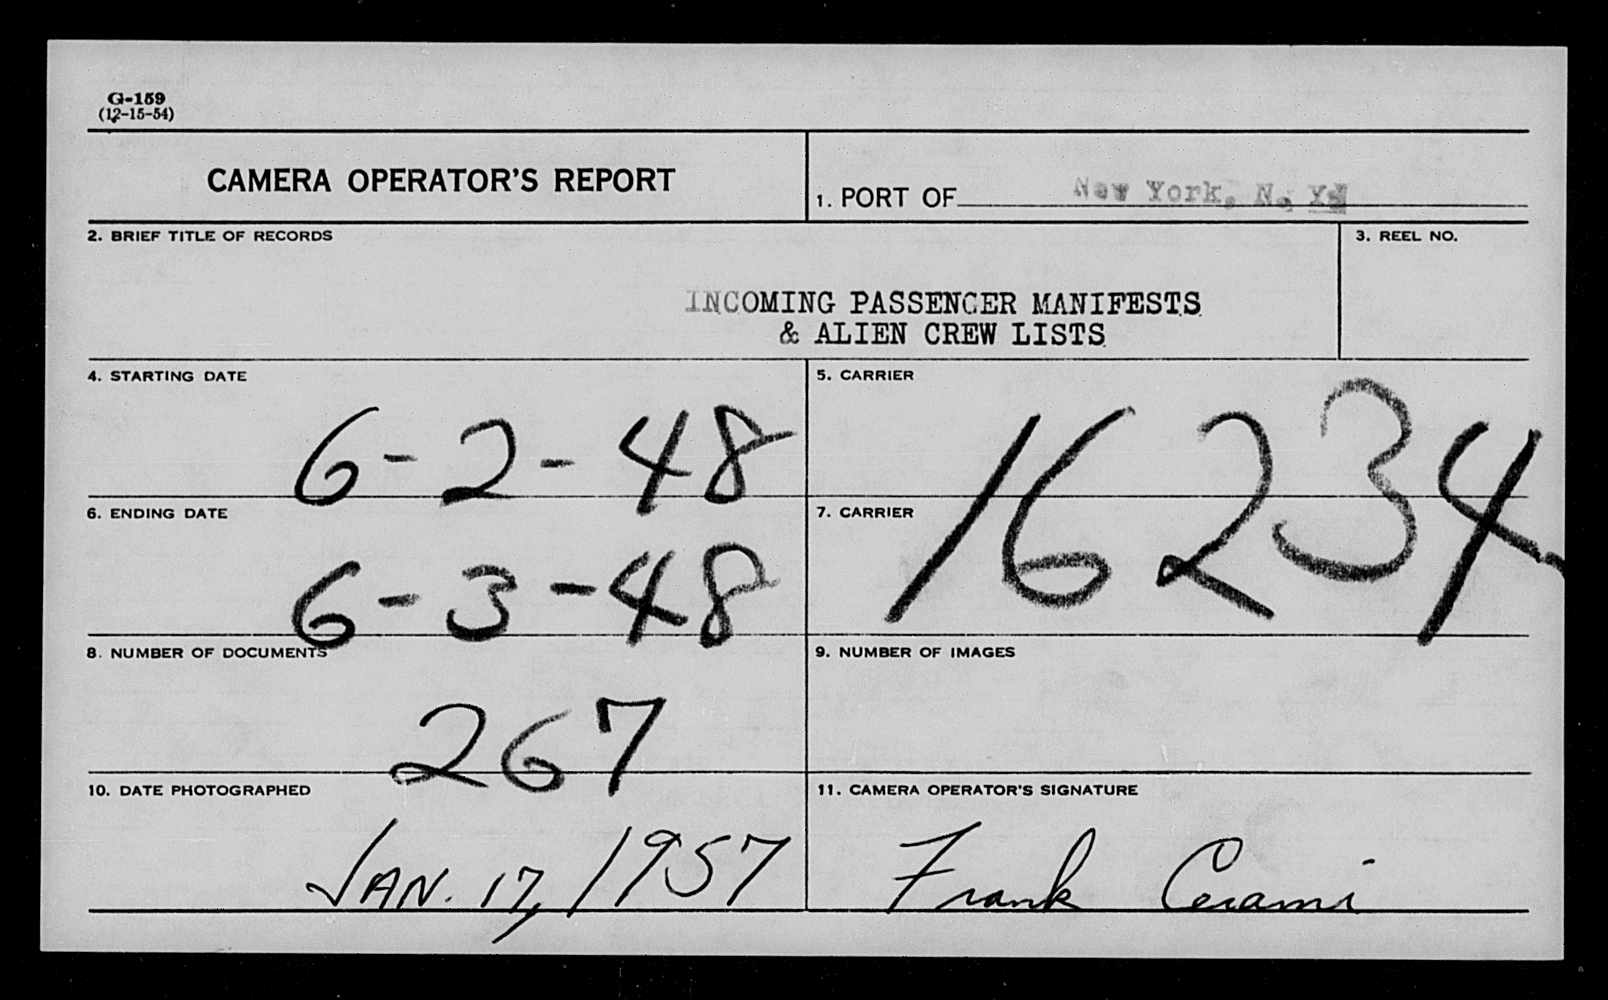 G-159
(12-15-54)
CAMERA OPERATOR'S REPORT
1. PORT OF New York, N. Y.
2. BRIEF TITLE OF RECORDS
3. REEL NO.
INCOMING PASSENGER MANIFESTS
& ALIEN CREW LISTS
4. STARTING DATE
6-2-48
5. CARRIER
16234
6. ENDING DATE
6-3-48
7. CARRIER
8. NUMBER OF DOCUMENTS
267
9. NUMBER OF IMAGES
10. DATE PHOTOGRAPHED
JAN. 17, 1957
11. CAMERA OPERATOR'S SIGNATURE
Frank Cerami